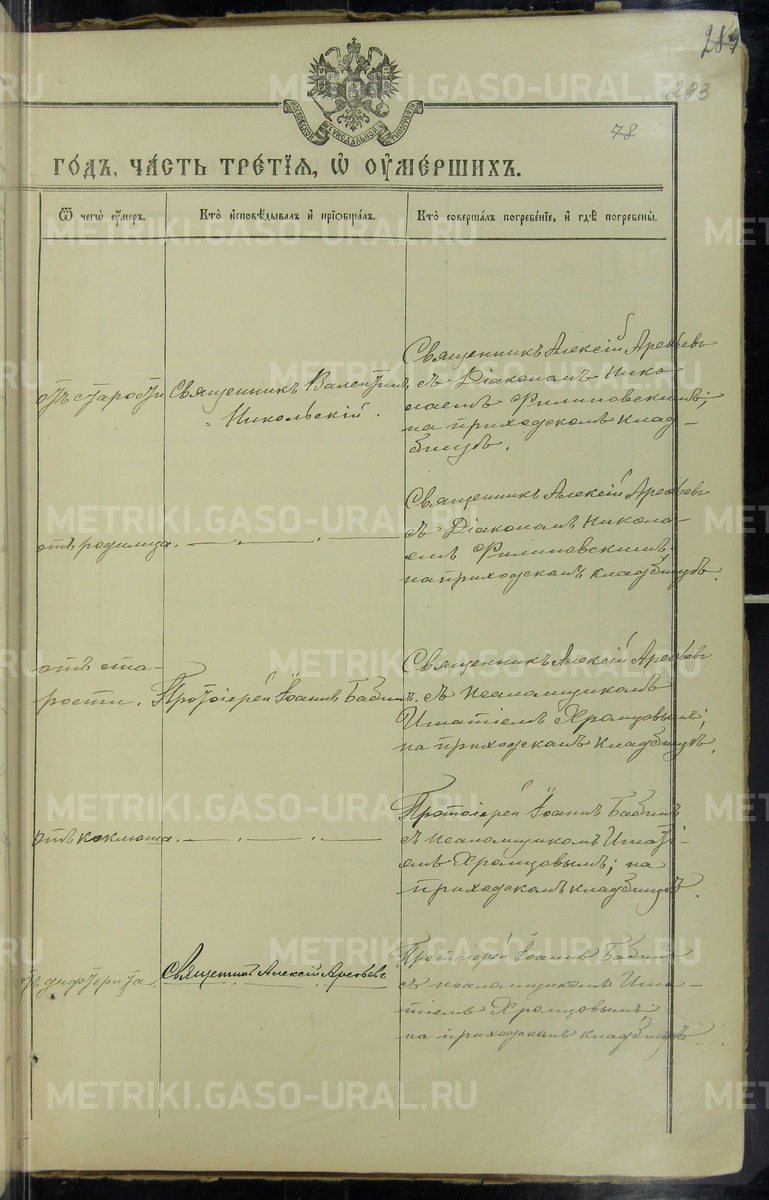 283
283
78
МОСКОВСКОЙ СѴНОДАЛЬНОЙ ТИПОГРАФІИ
ГО́ДЪ, ЧА́СТЬ ТРЕ́ТІѦ, Ѡ҆ ОУ҆МЕ́РШИХЪ.
Ѿ чегѡ̀ оу҆́меръ.
Кто̀ и҆сповѣ́дывалъ и҆ прїѡбща́лъ.
Кто̀ соверша́лъ погребе́нїе, и҆ гдѣ̀ погребены̀.
отъ старости
Священникъ Валентинъ
Никольскій.
Священникъ Алексій Арефьевъ
съ Діакономъ Нико-
лаемъ Филиповскимъ;
на приходскомъ клад-
бищѣ.
отъ родимца.
— „ — „ —
Священникъ Алексій Арефьевъ
съ Діакономъ Никола-
емъ Филиповскимъ.
на приходскомъ кладбищѣ.
отъ ста-
рости.
Протоіерей Іоаннъ Бабинъ.
Священникъ Алексій Арефьевъ
съ псаломщикомъ
Игнатіемъ Хромцовымъ;
на приходскомъ кладбищѣ.
отъ коклюша.
— „ — „ —
Протоіерей Іоаннъ Бабинъ
съ псаломщикомъ Игнаті-
емъ Хромцовымъ; на
приходскомъ кладбищѣ.
отъ дифтерита.
Священникъ Алексій Арефьевъ
Протоіерей Іоаннъ Бабинъ
съ псаломщикомъ Игна-
тіемъ Хромцовымъ
на приходскомъ кладбищѣ.
METRIKI.GASO-URAL.RU